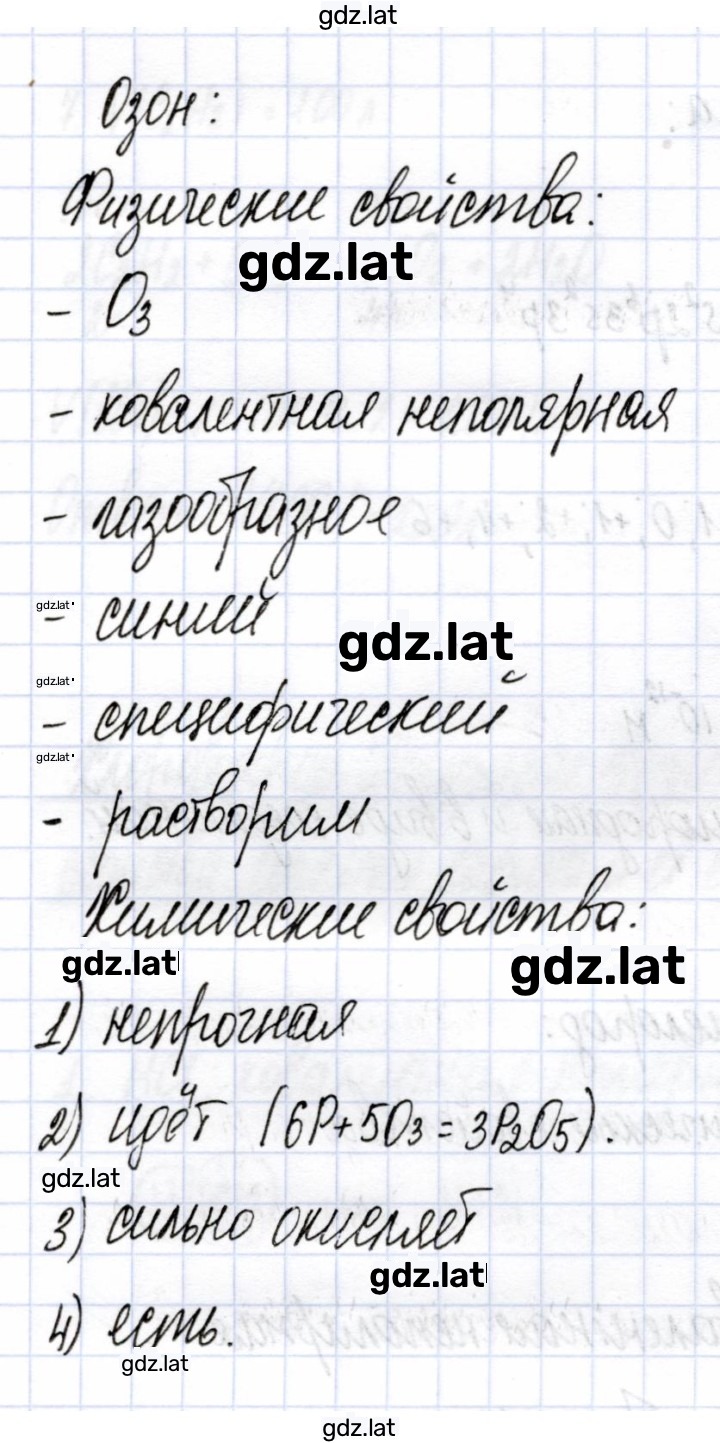 gdz.lat
Озон:
Физические свойства:
gdz.lat
- O₃
- ковалентная неполярная
- газообразное
gdz.lat
- синий
gdz.lat
gdz.lat
- специфический
gdz.lat
- растворим
Химические свойства:
gdz.lat
gdz.lat
1) непрочная
2) идёт (6P+5O₃=3P₂O₅).
gdz.lat
3) сильно окисляет
gdz.lat
4) есть.
gdz.lat
gdz.lat